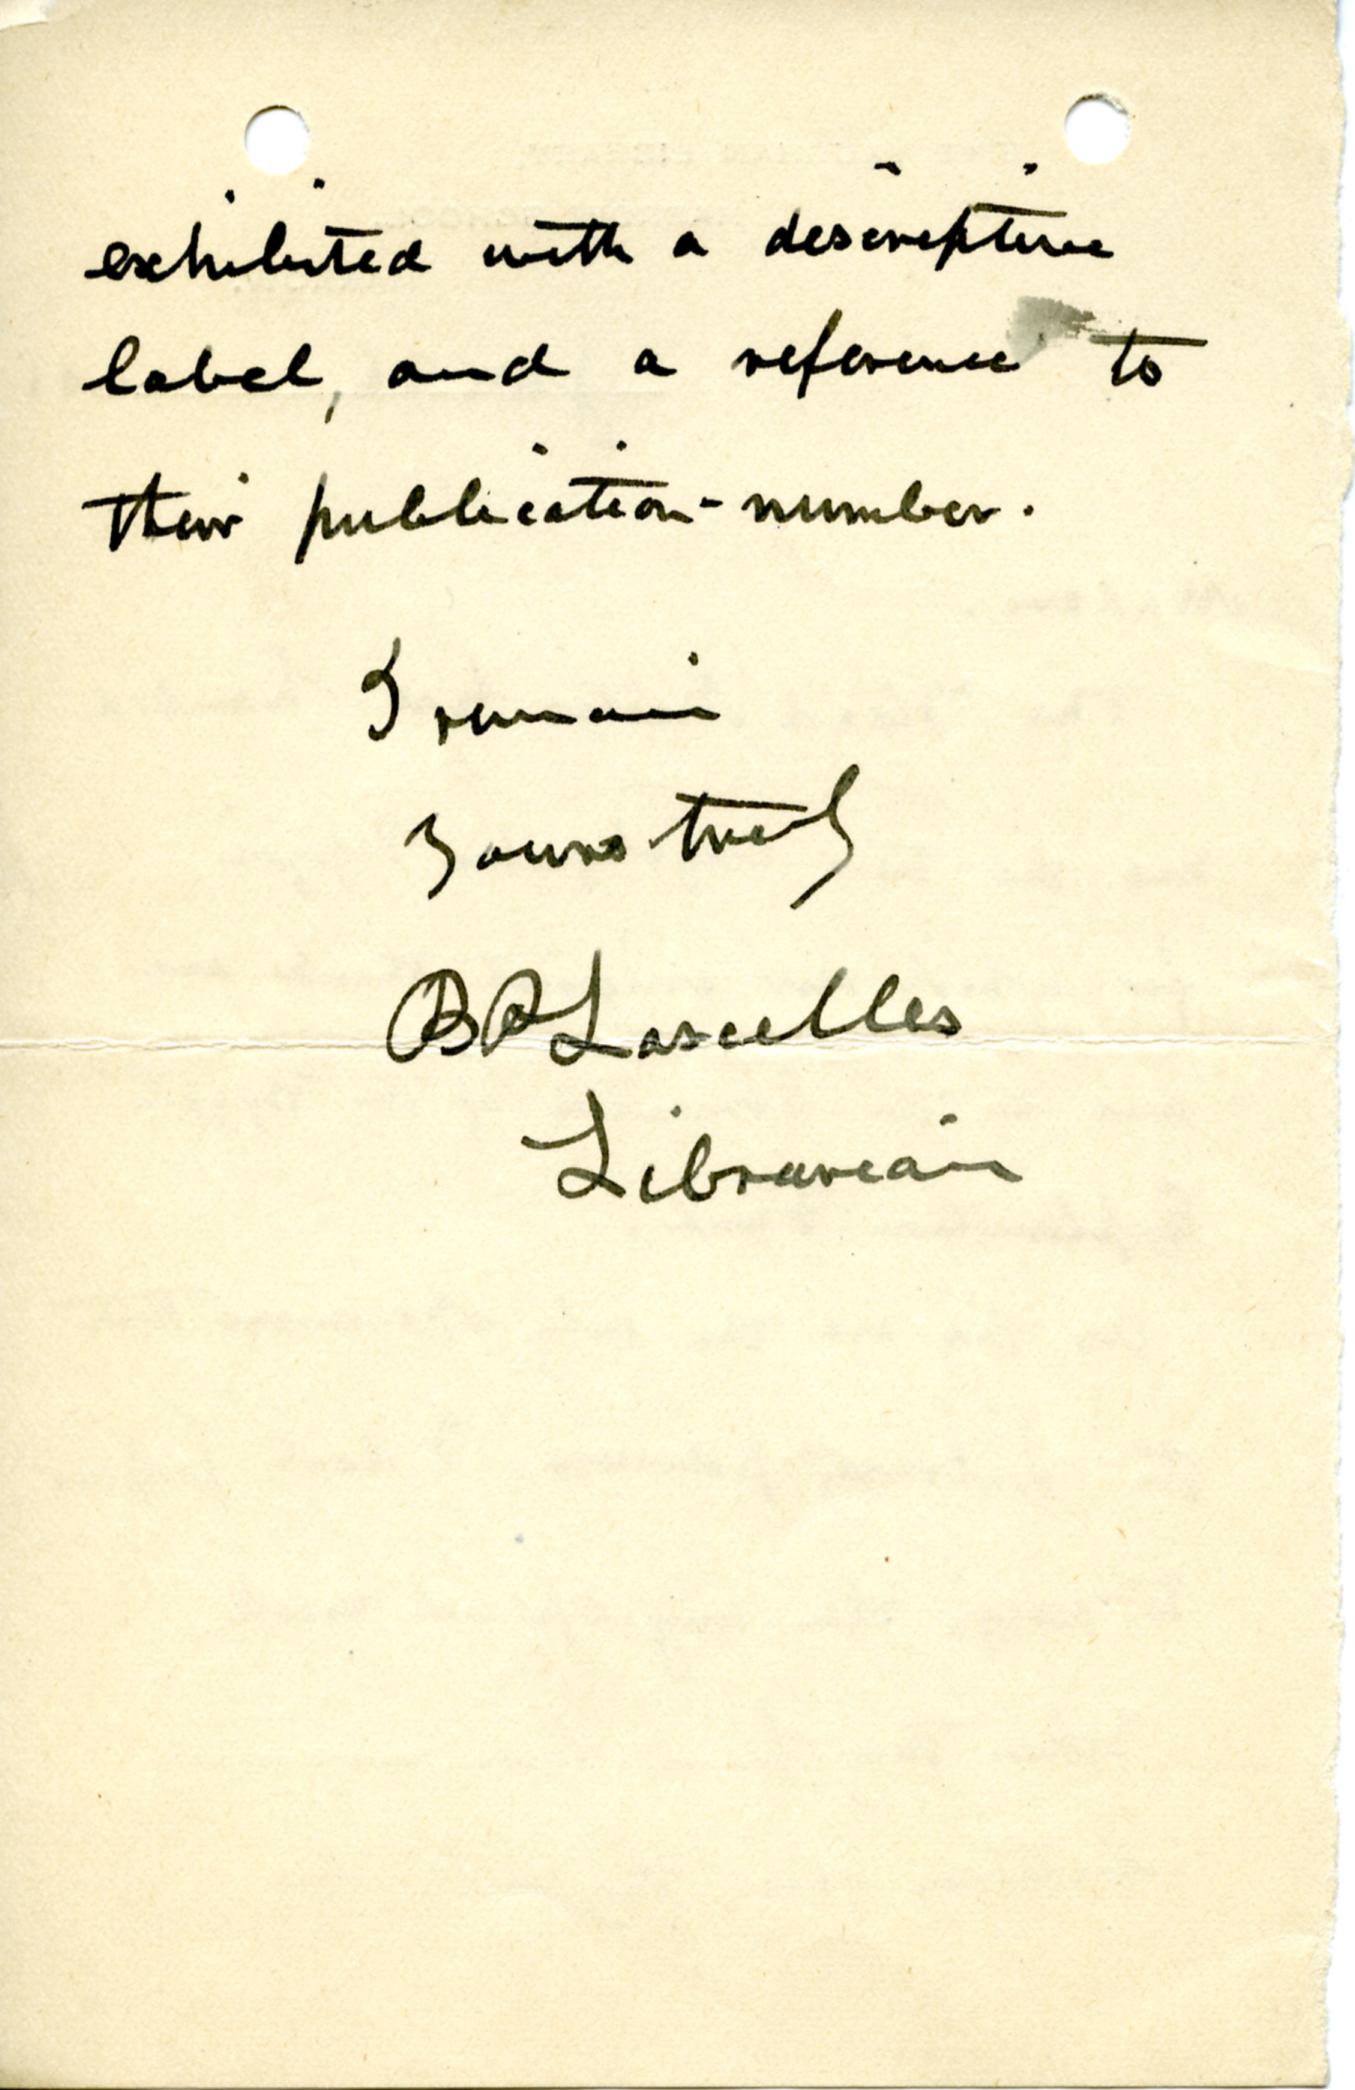 exhibited with a descriptive
label, and a reference to
their publication-number.
I remain
Yours truly
B P Lascelles
Librarian